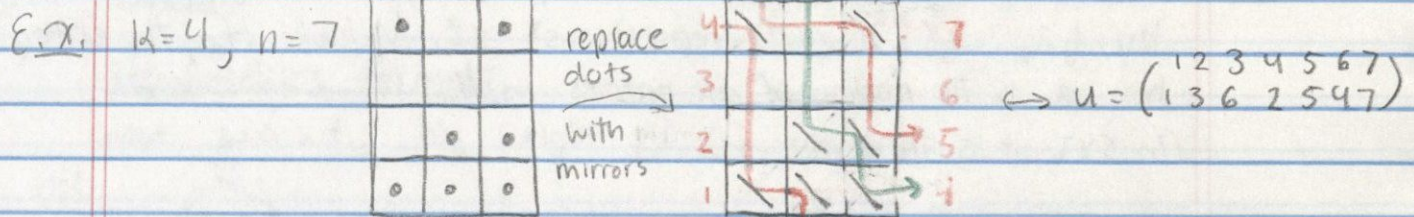 E.x. k=4, n=7 replace dots with mirrors 4 3 2 1 7 6 5 4 ↔ u = (1 2 3 4 5 6 7
1 3 6 2 5 4 7)